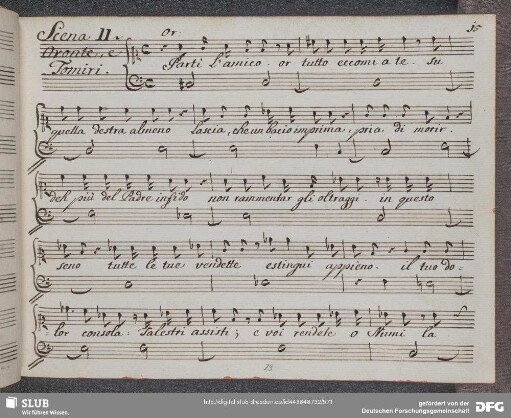 Scena II.
Oronte, e
Tomiri.
Or:
15
Parti l'amico. or tutto eccomi a te. su
quella destra almeno lascia, che un bacio imprima, pria di morir.
deh più del Padre infido non rammentar gli oltraggi. in questo
seno tutte le tue vendette estingui appieno. il tuo do-
lor consola: Talestri assisti; e voi rendete o Numi la
SLUB
Wir führen Wissen.
gefördert von der
Deutschen Forschungsgemeinschaft
DFG